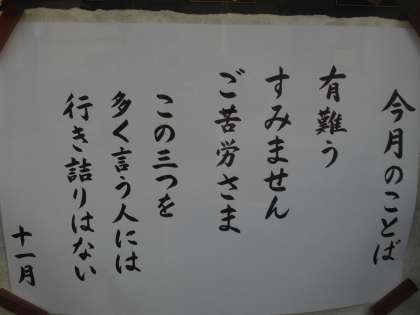 今月のことば
有難う
すみません
ご苦労さま
この三つを
多く言う人には
行き詰りはない
十一月